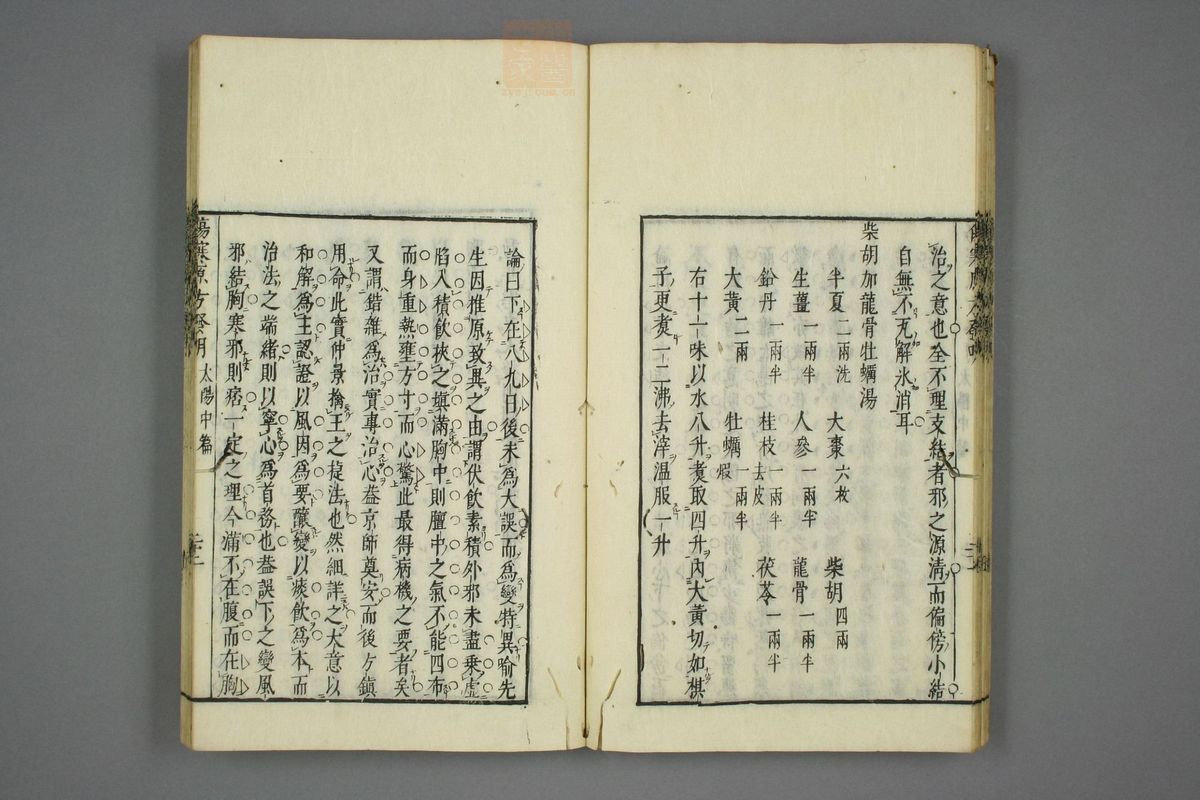 治之意也全不理支結者邪之源清而偏傍小結
自無不瓦解氷消耳
柴胡加龍骨牡蠣湯
半夏二兩洗 大棗六枚 柴胡四兩
生薑一兩半 人參一兩半 龍骨一兩半
鉛丹一兩半 桂枝去皮一兩半 茯苓一兩半
大黃二兩 牡蠣一兩半煆
右十一味以水八升煑取四升內大黃切如棋
子更煑一二沸去滓温服一升
論曰下在八九日後未爲大誤而爲變特異喻先
生因推原致異之由謂伏飲素積外邪未盡乘虛
陷入積飲挾之填滿胸中則膻中之氣不能四布
而身重熱壅方寸而心驚此最得病機之要者矣
又謂錯雜爲治實專治心葢京師奠安而後方鎭
用命此實仲景擒王之㨗法也然細詳之大意以
和解爲主認證以風因爲要釀變以痰飲爲本而
治法之端緒則以寧心爲首務也葢誤下之變風
邪結胸寒邪則痞一定之理今滿不在腹而在胸
傷寒原方發明 太陽中篇